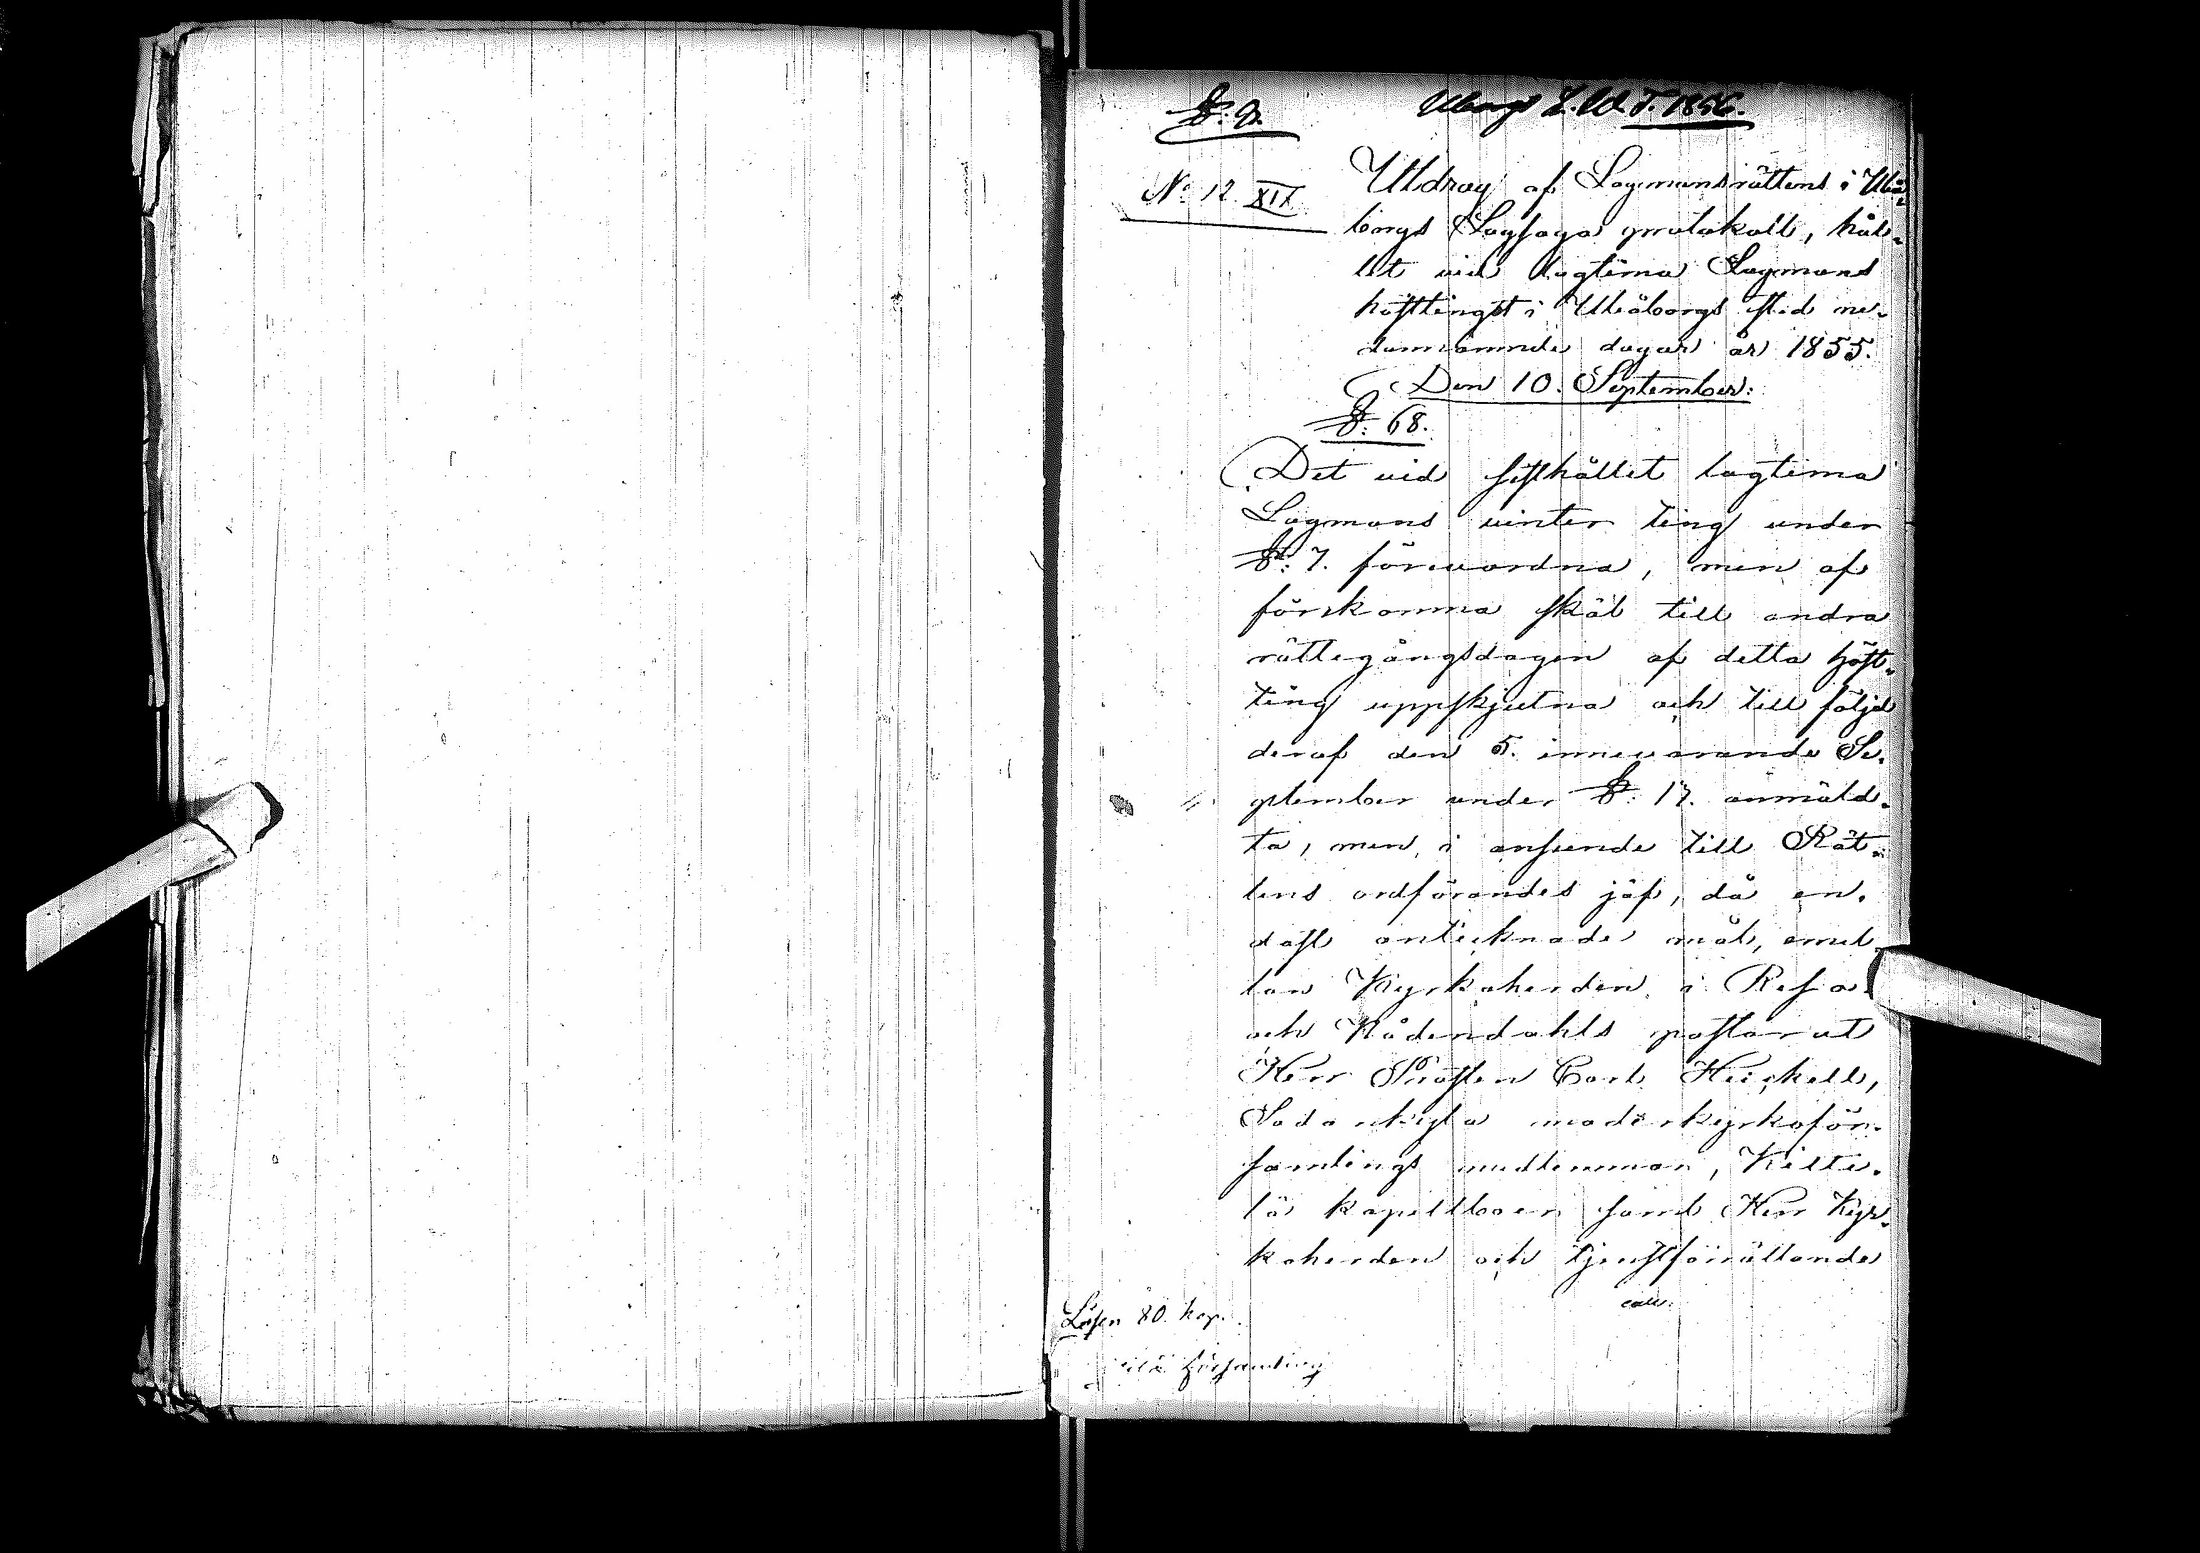 §: 9.
Uleåborgs L. W. T. 1856.
No 12 XIX
Utdrag af Lagmansrättens i Uleå-
borgs Lagsaga protokoll, hål-
let vid lagtima Lagmans
höstting i Uleåborgs stad ne-
dannämnde dagar år 1855.
Den 10. September:
§: 68.
Det vid sisthållet lagtima
Lagmans vinter ting under
§: 7. förevordna, men af
förekomna skäl till andra
rättegångsdagen af detta höst-
ting uppskjutna och till följd
deraf den 5. innevarande Se-
ptember under §: 17. anmäld-
ta, men i anseende till Rät-
tens ordförandes jäf, då en-
dast antecknade mål, emel-
lan Kyrkoherden i Reso
och Nådendahls pastorat
Herr Prosten Carl Heickell,
Sodankylä moderkyrkoför-
samlings medlemmar, Kitti-
lä kapellboer samt Herr Kyr-
koherden och tjenstförrättande
Lösen 80. kop.
församling